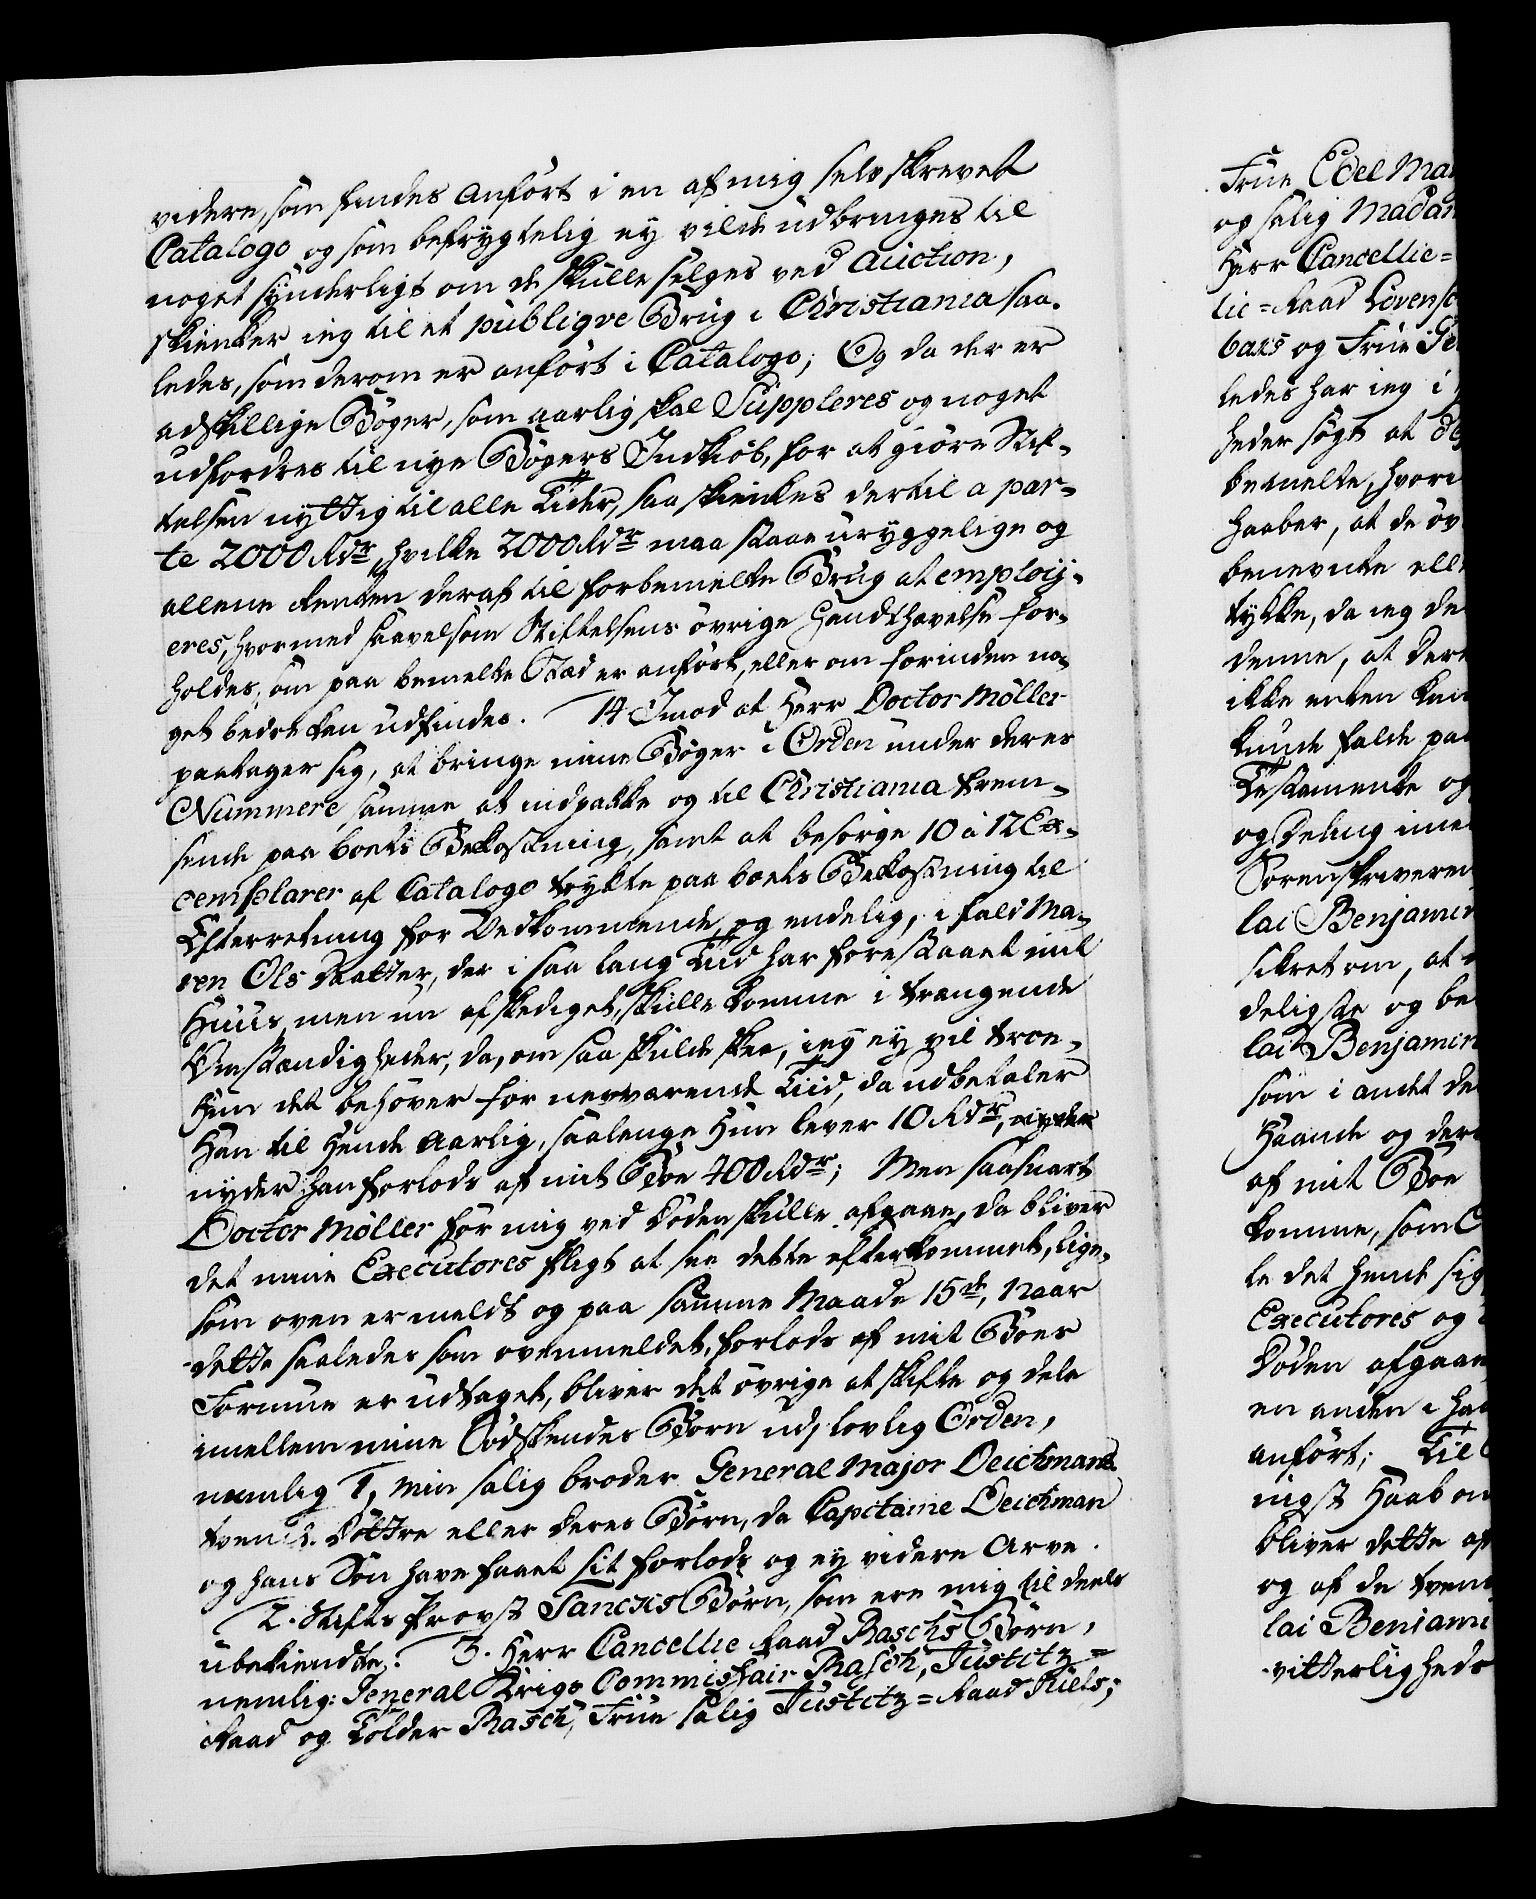 videre, som findes anført i en af mig selv skrevet
Catalogo og som befrygtelig ey vilde udbringes til
noget synderligt om de skulle selges ved Auction,
skienker ieg til et publiqve Brug i Christiania saa-
ledes, som derom er anført i Catalogo; Og da der er
adskillige Bøger, som aarlig skal Suppleres og noget
udfordres til nye Bøgers Indkiøb, for at giøre Stif-
telsen nyttig til alle Tider, saa skienkes dertil a par-
te 2000 Rdr, hvilke 2000 Rdr maa staae uryggelige og
allene Renten deraf til forbemelte Brug at emploij-
eres, hvormed saavelsom Stiftelsens øvrige Handthævelse for-
holdes, som paa bemelte Stæd er anført, eller om forinden no-
get bedre kan udfindes. 14 Imod at Herr Doctor Möller
paatager sig, at bringe mine Bøger i Orden under deres
Nummere, samme at indpakke og til Christiania frem-
sende paa boets Bekostning, samt at besørge 10 à 12 Ex-
cemplarer af Catalogo trykte paa boets Bekostning til
Efterretning for Vedkommende, og endelig, i fald Ma-
ren Ols Daatter, der i saa lang Tiid har forestaaet mit
Huus, men nu afskediget, skulle komme i trængende
Omstændigheder, da, om saa skulde skee, ieg ey vil troe,
Hun det behøver for nerværende Tiid, da udbetaler
Han til Hende Aarlig, saalenge Hun lever 10 Rdr,
nyder Han forlods af mit Boe 400 Rdr; Men saasnart
Doctor Möller før mig ved Døden skulle afgaae, da bliver
det mine Executores Pligt at see dette efterkommet, lige-
som oven er meldt og paa samme Maade 15de, Naar
dette saaledes som ovenmeldet, forlods af mit Boes
Formue er udtaget, bliver det øvrige at skifte og dele
imellem mine Sødskendes Børn udj lovlig Orden,
nemlig 1, Min salig broder General Major Deichmans
tvende Døttre eller deres Børn, da Capitaine Deichman
og hans Søn have faaet sit forlods og ey videre Arve.
2. Stifts Provst Tanckis Børn, som ere mig til deels
ubekiendte. 3. Herr Cancellie Raad Raschs Børn,
nemlig: General Krigs Commissair Rasch, Justitz=
Raad og Tolder Rasch, Frue salig Justitz=Raad Kiels;
Frue Edel Ma
og salig Madam
Herr Cancellie=
lie=Raad
og Frue
ledes har ieg i
heder søgt at
bemelte, hvori
haaber, at de øv
benevnte ell
tykke, da ieg de
denne, at der
ikke enten kan
kunde falde paa
Testamente og
og Deling ime
Sorenskriveren
lai Benjamin
sikret om, at
deligste og be
lai Benjamin
som i andet de
Haande og der
af mit Boe
komme, som
le det hende sig
Executores og
Døden afgaae
en anden i ha
anført; Til
nigst Haab om
bliver dette af
og af de tven
lai Beniami
vitterligheds